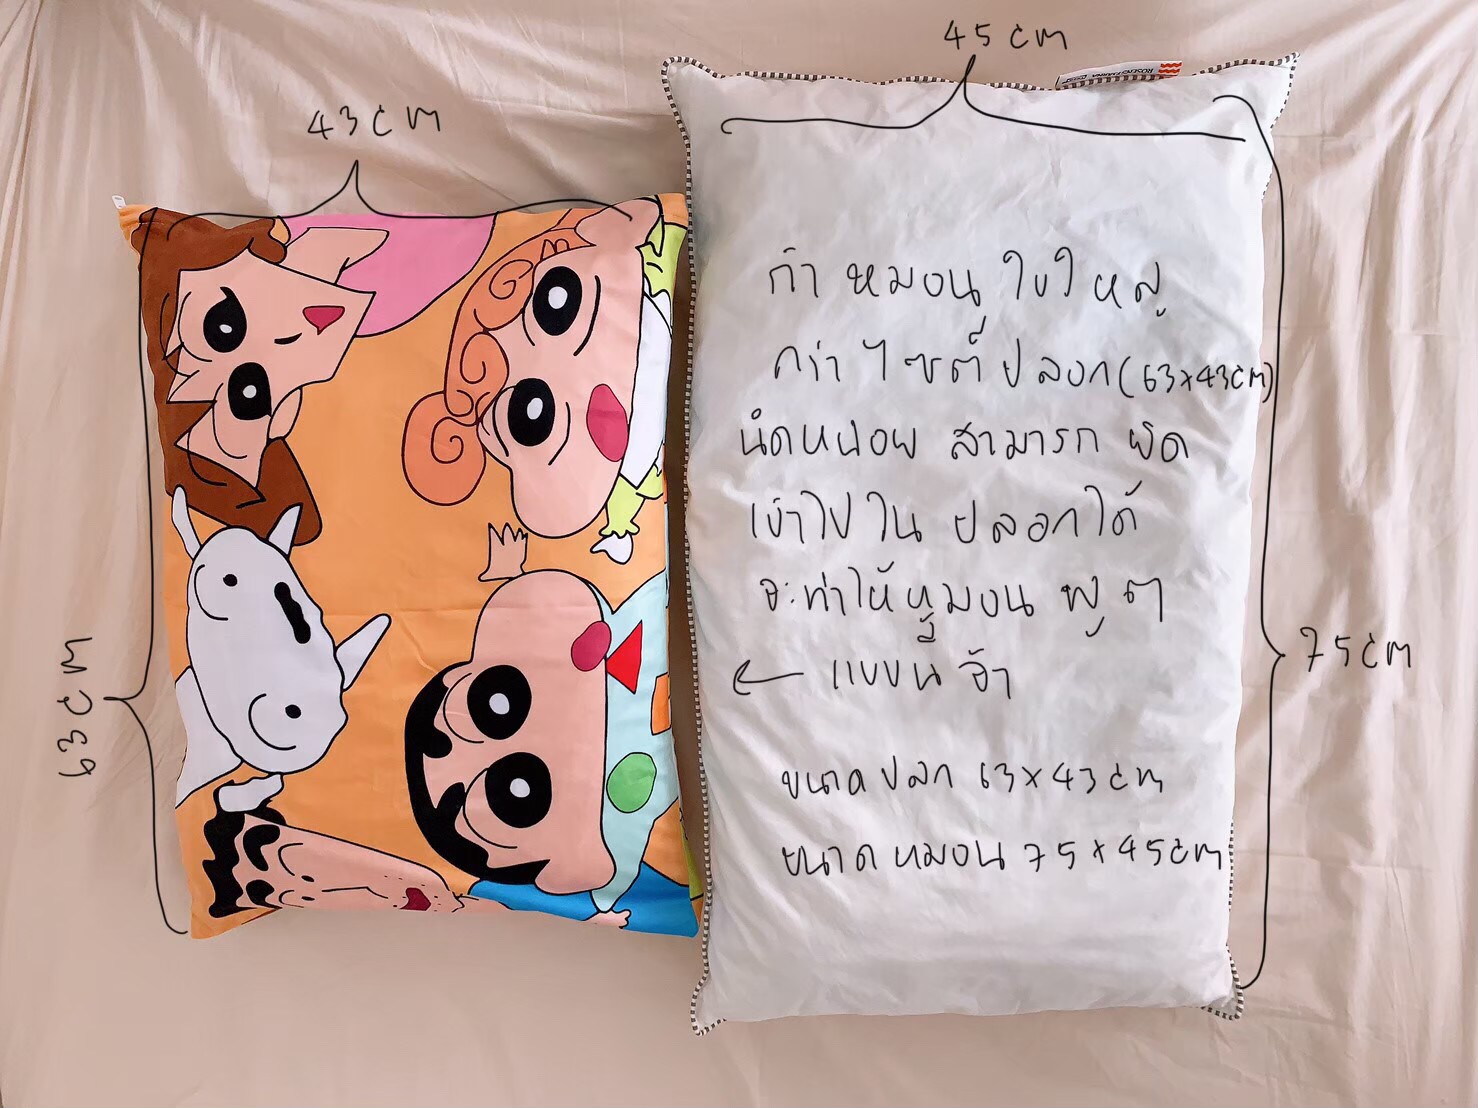 43 cm
45 cm
63 cm
75 cm
ถ้า หมอน ใบใหญ่
กว่า ไซต์ ปลอก (63x43cm)
นิดหน่อย สามารถ ยัด
เข้าไป ใน ปลอกได้
จะทำให้หมอน ฟู ๆ
← แบบนี้ จ้า
ขนาด ปลก 63x43cm
ขนาด หมอน 75x45cm